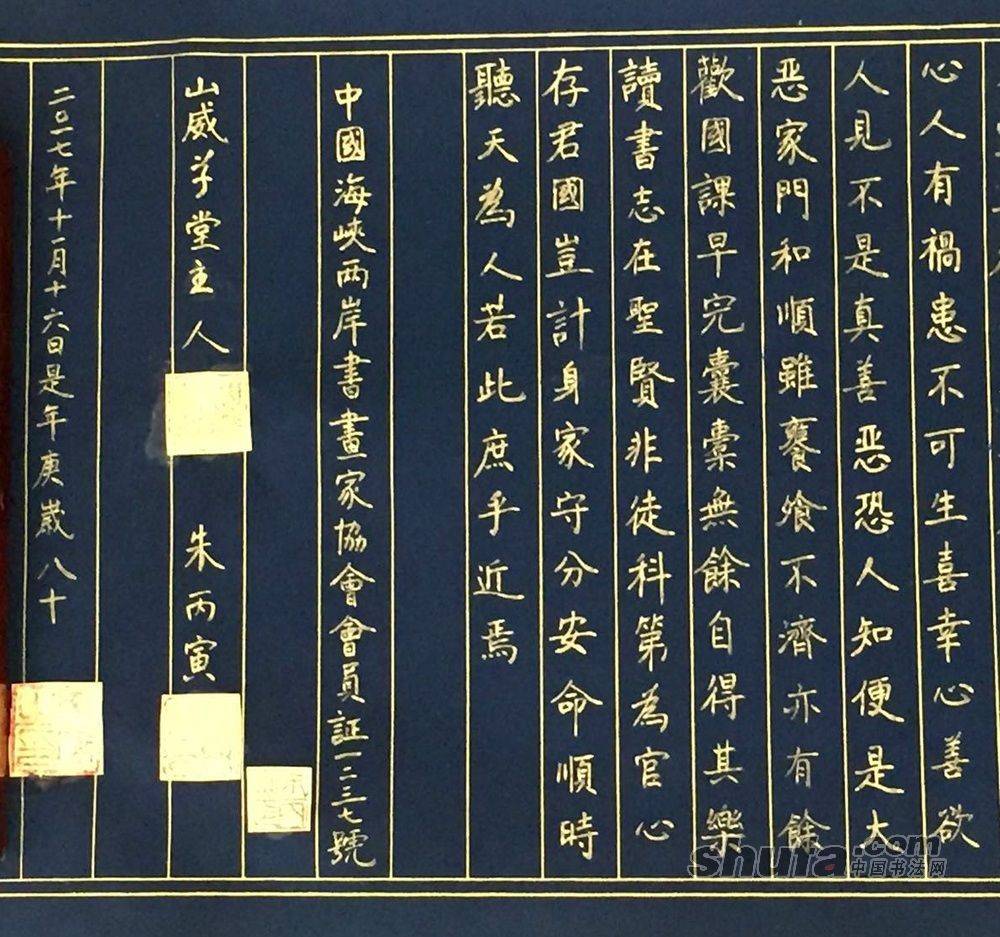 心人有禍患不可生喜幸心善欲
人見不是真善恶恐人知便是大
恶家門和順雖饔飧不濟亦有餘
歡國課早完囊橐無餘自得其樂
讀書志在聖賢非徒科第為官心
存君國豈計身家守分安命順時
聽天為人若此庶乎近焉
中國海峽两岸書畫家協會會員証一二三七號
山威草堂主人 朱丙寅
二〇一七年十一月十六日是年庚歲八十
shufa.com
中国书法网